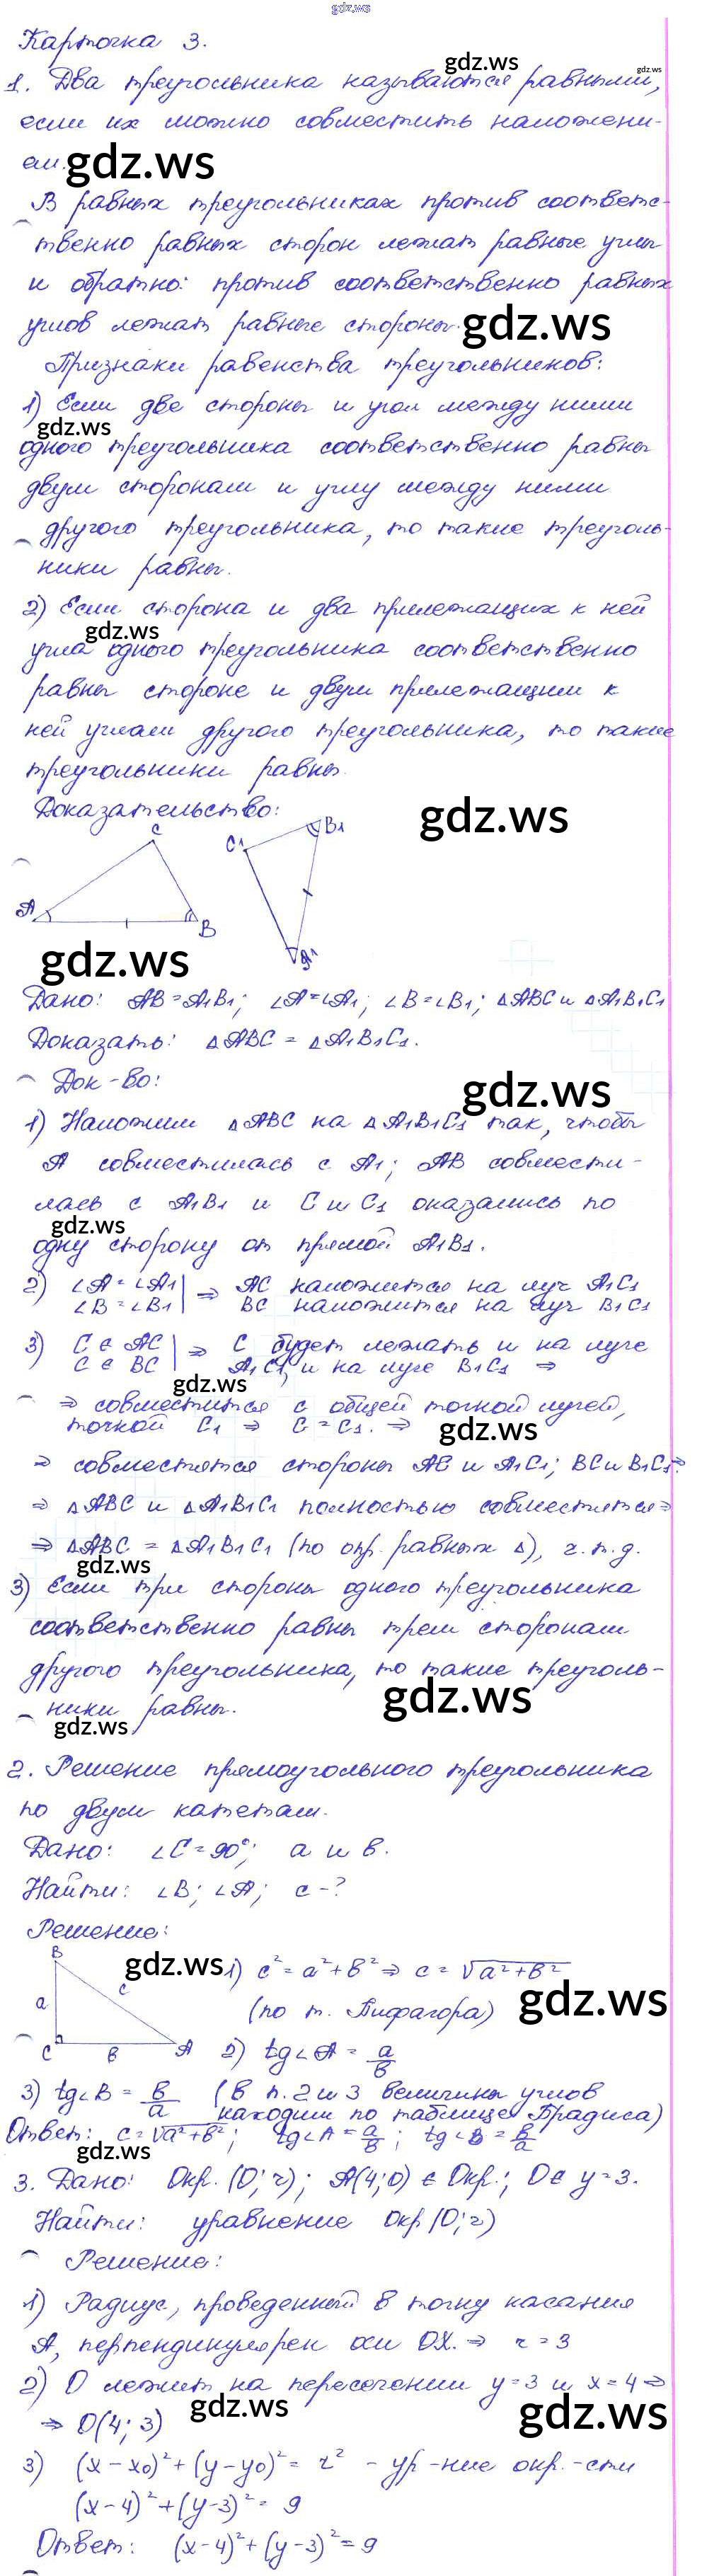 gdz.ws
Карточка 3.
gdz.ws
gdz.ws
1. Два треугольника называются равными,
если их можно совместить наложени-
ем.
gdz.ws
В равных треугольниках против соответс-
твенно равных сторон лежат равные углы
и обратно: против соответственно равных
углов лежат равные стороны.
gdz.ws
Признаки равенства треугольников:
1) Если две стороны и угол между ними
gdz.ws
одного треугольника соответственно равны
двум сторонам и углу между ними
другого треугольника, то такие треуголь-
ники равны.
2) Если сторона и два прилежащих к ней
gdz.ws
угла одного треугольника соответственно
равны стороне и двум прилежащим к
ней углам другого треугольника, то такие
треугольники равны.
Доказательство:
gdz.ws
C
C1
B1
A
B
A1
gdz.ws
Дано: AB = A1B1; ∠A = ∠A1; ∠B = ∠B1; △ABC и △A1B1C1
Доказать: △ABC = △A1B1C1.
Док-во:
gdz.ws
1) Наложим △ABC на △A1B1C1 так, чтобы
A совместилась с A1; AB совмести-
лась с A1B1 и C и C1 оказались по
gdz.ws
одну сторону от прямой A1B1.
2) ∠A = ∠A1 | ⇒ AC наложится на луч A1C1
∠B = ∠B1 | BC наложится на луч B1C1
3) C ∈ AC | ⇒ C будет лежать и на луче
C ∈ BC | A1C1, и на луче B1C1 ⇒
gdz.ws
⇒ совместится с общей точкой лучей,
точкой C1 ⇒ C = C1. ⇒
gdz.ws
⇒ совместятся стороны AC и A1C1; BC и B1C1 ⇒
⇒ △ABC и △A1B1C1 полностью совместятся ⇒
⇒ △ABC = △A1B1C1 (по опр. равных △), ч.т.д.
gdz.ws
3) Если три стороны одного треугольника
соответственно равны трем сторонам
другого треугольника, то такие треуголь-
ники равны.
gdz.ws
gdz.ws
2. Решение прямоугольного треугольника
по двум катетам.
Дано: ∠C = 90°; a и b.
Найти: ∠B; ∠A; c - ?
Решение:
B
gdz.ws
1) c² = a² + b² ⇒ c = √a² + b²
c
a
(по т. Пифагора)
gdz.ws
C
b
A
2) tg∠A = a/b
3) tg∠B = b/a (в п. 2 и 3 величины углов
находим по таблице Брадиса)
Ответ: c = √a² + b²; tg∠A = a/b; tg∠B = b/a
gdz.ws
3. Дано: Окр. (O; r); A(4; 0) ∈ Окр.; O ∈ y = 3.
Найти: уравнение Окр (O; r)
Решение:
1) Радиус, проведенный в точку касания
A, перпендикулярен оси OX. ⇒ r = 3
2) O лежит на пересечении y = 3 и x = 4 ⇒
gdz.ws
⇒ O(4; 3)
gdz.ws
3) (x - x0)² + (y - y0)² = r² - ур-ние окр.-сти
(x - 4)² + (y - 3)² = 9
Ответ: (x - 4)² + (y - 3)² = 9